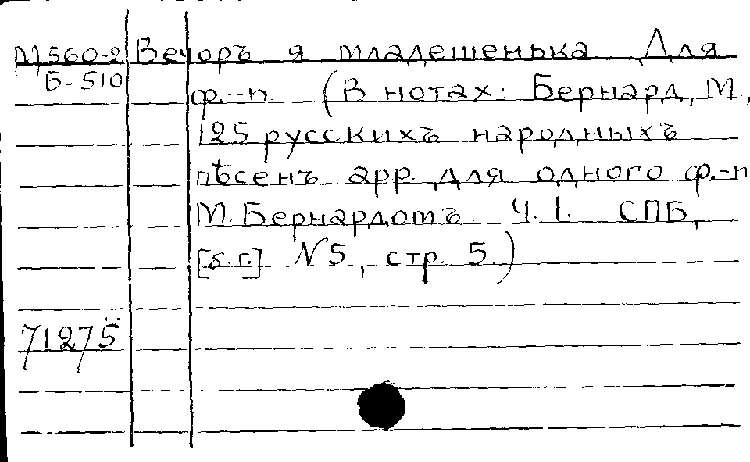 М560-2 Вечоръ я младешенька Для
Б-510
ф.-п. (В нотах: Бернард, М.,
125 русскихъ народныхъ
пѣсенъ арр. для одного ф.-п
М. Бернардомъ Ч. I. СПБ,
[б.г.] №5, стр. 5.)
71275